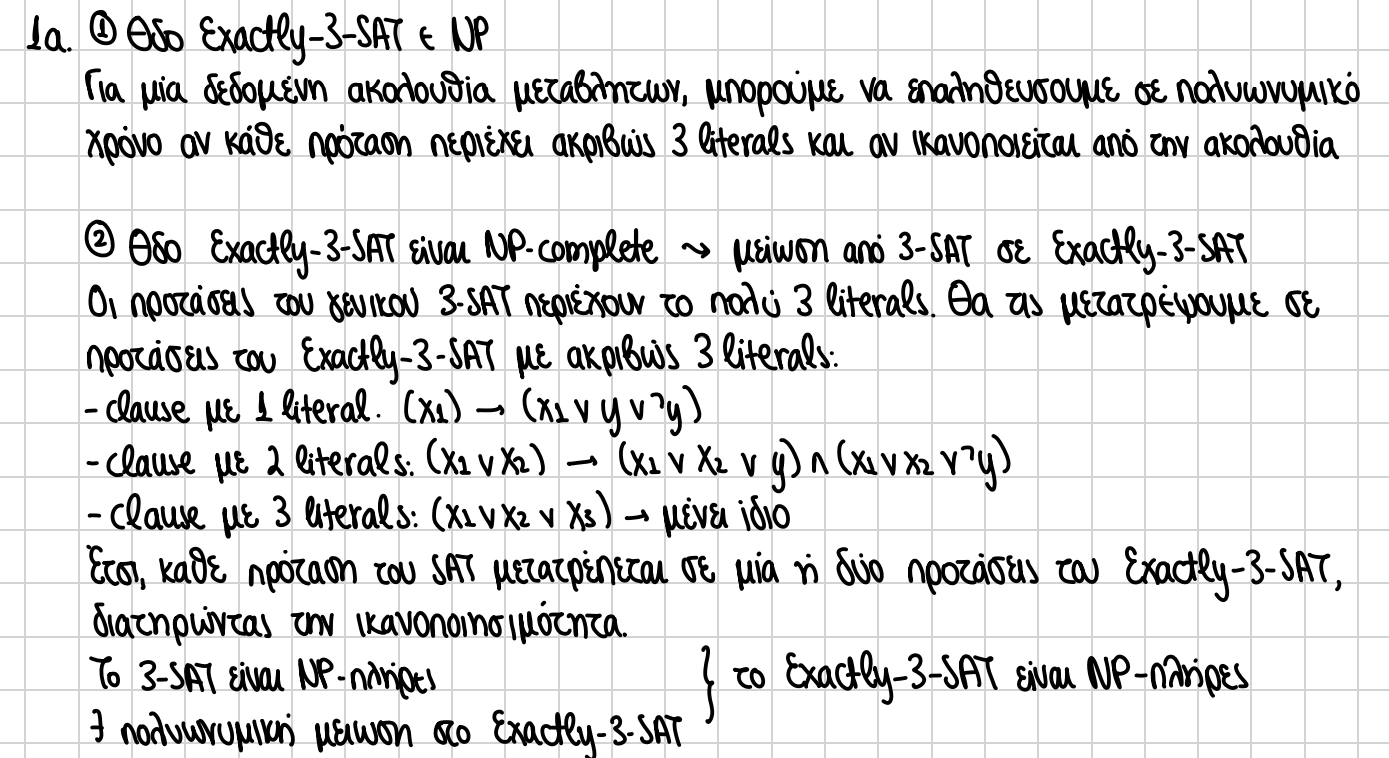 1a. ① Θδο Exactly-3-SAT ∈ NP
Για μία δεδομένη ακολουθία μεταβλητών, μπορούμε να επαληθευσουμε σε πολυωνυμικό
χρόνο αν κάθε πρόταση περιέχει ακριβώς 3 literals και αν ικανοποιείται από την ακολουθία
② Θδο Exactly-3-SAT είναι NP-complete ⤳ μείωση από 3-SAT σε Exactly-3-SAT
Οι προτάσεις του γενικου 3-SAT περιέχουν το πολύ 3 literals. Θα τις μετατρέψουμε σε
προτάσεις του Exactly-3-SAT με ακριβώς 3 literals:
- clause με 1 literal. (x1) → (x1 ∨ y ∨ ¬y)
- clause με 2 literals: (x1 ∨ x2) → (x1 ∨ x2 ∨ y) ∧ (x1 ∨ x2 ∨ ¬y)
- clause με 3 literals: (x1 ∨ x2 ∨ x3) → μένει ίδιο
Έτσι, καθε πρόταση του SAT μετατρέπεται σε μία ή δύο προτάσεις του Exactly-3-SAT,
διατηρώντας την ικανοποιησιμότητα.
Το 3-SAT είναι NP-πλήρες } το Exactly-3-SAT είναι NP-πλήρες
∃ πολυωνυμική μειωση στο Exactly-3-SAT